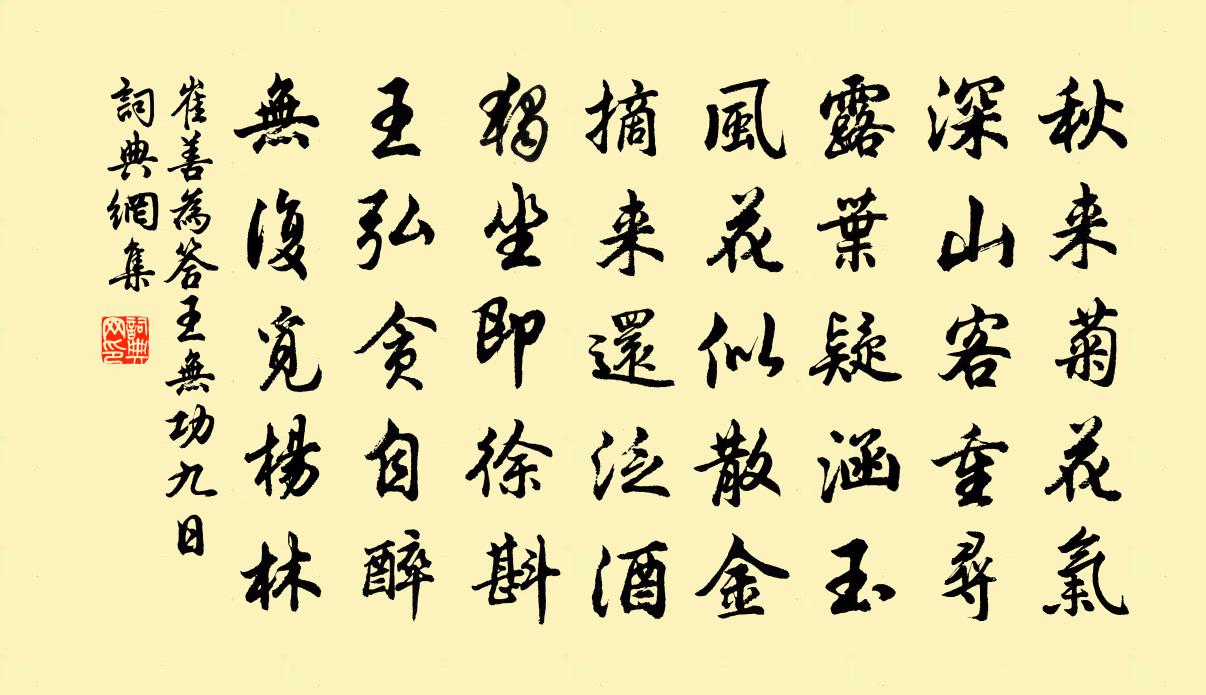 秋来菊花氣
深山客重尋
露葉疑涵玉
風花似散金
摘来還泛酒
獨坐即徐斟
王弘貪自醉
無復覓楊林
崔善為答王無功九日
詞典網集
詞典網印